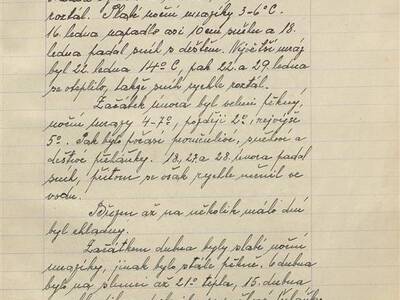 roztál. Slabé noční mrazíky 3-6°C.
16. ledna napadlo asi 10 cm sněhu a 18.
ledna padal sníh s deštěm. Největší mráz
byl 22. ledna 14°C, pak 22. a 29. ledna
se oteplilo, takže sníh rychle roztál.
Začátek února byl velmi pěkný,
noční mrazy 4-7°, později 2°, nejvýše
5°. Pak bylo počasí proměnlivé, sněhové a
dešťové přeháňky. 18., 27. a 28. února padal
sníh, přitom se však rychle měnil ve
vodu.
Březen až na několik málo dní
byl chladný.
Začátkem dubna byly slabé noční
mrazíky, jinak bylo stále pěkně. 6. dubna
bylo na slunci až 21° tepla, 15. dubna